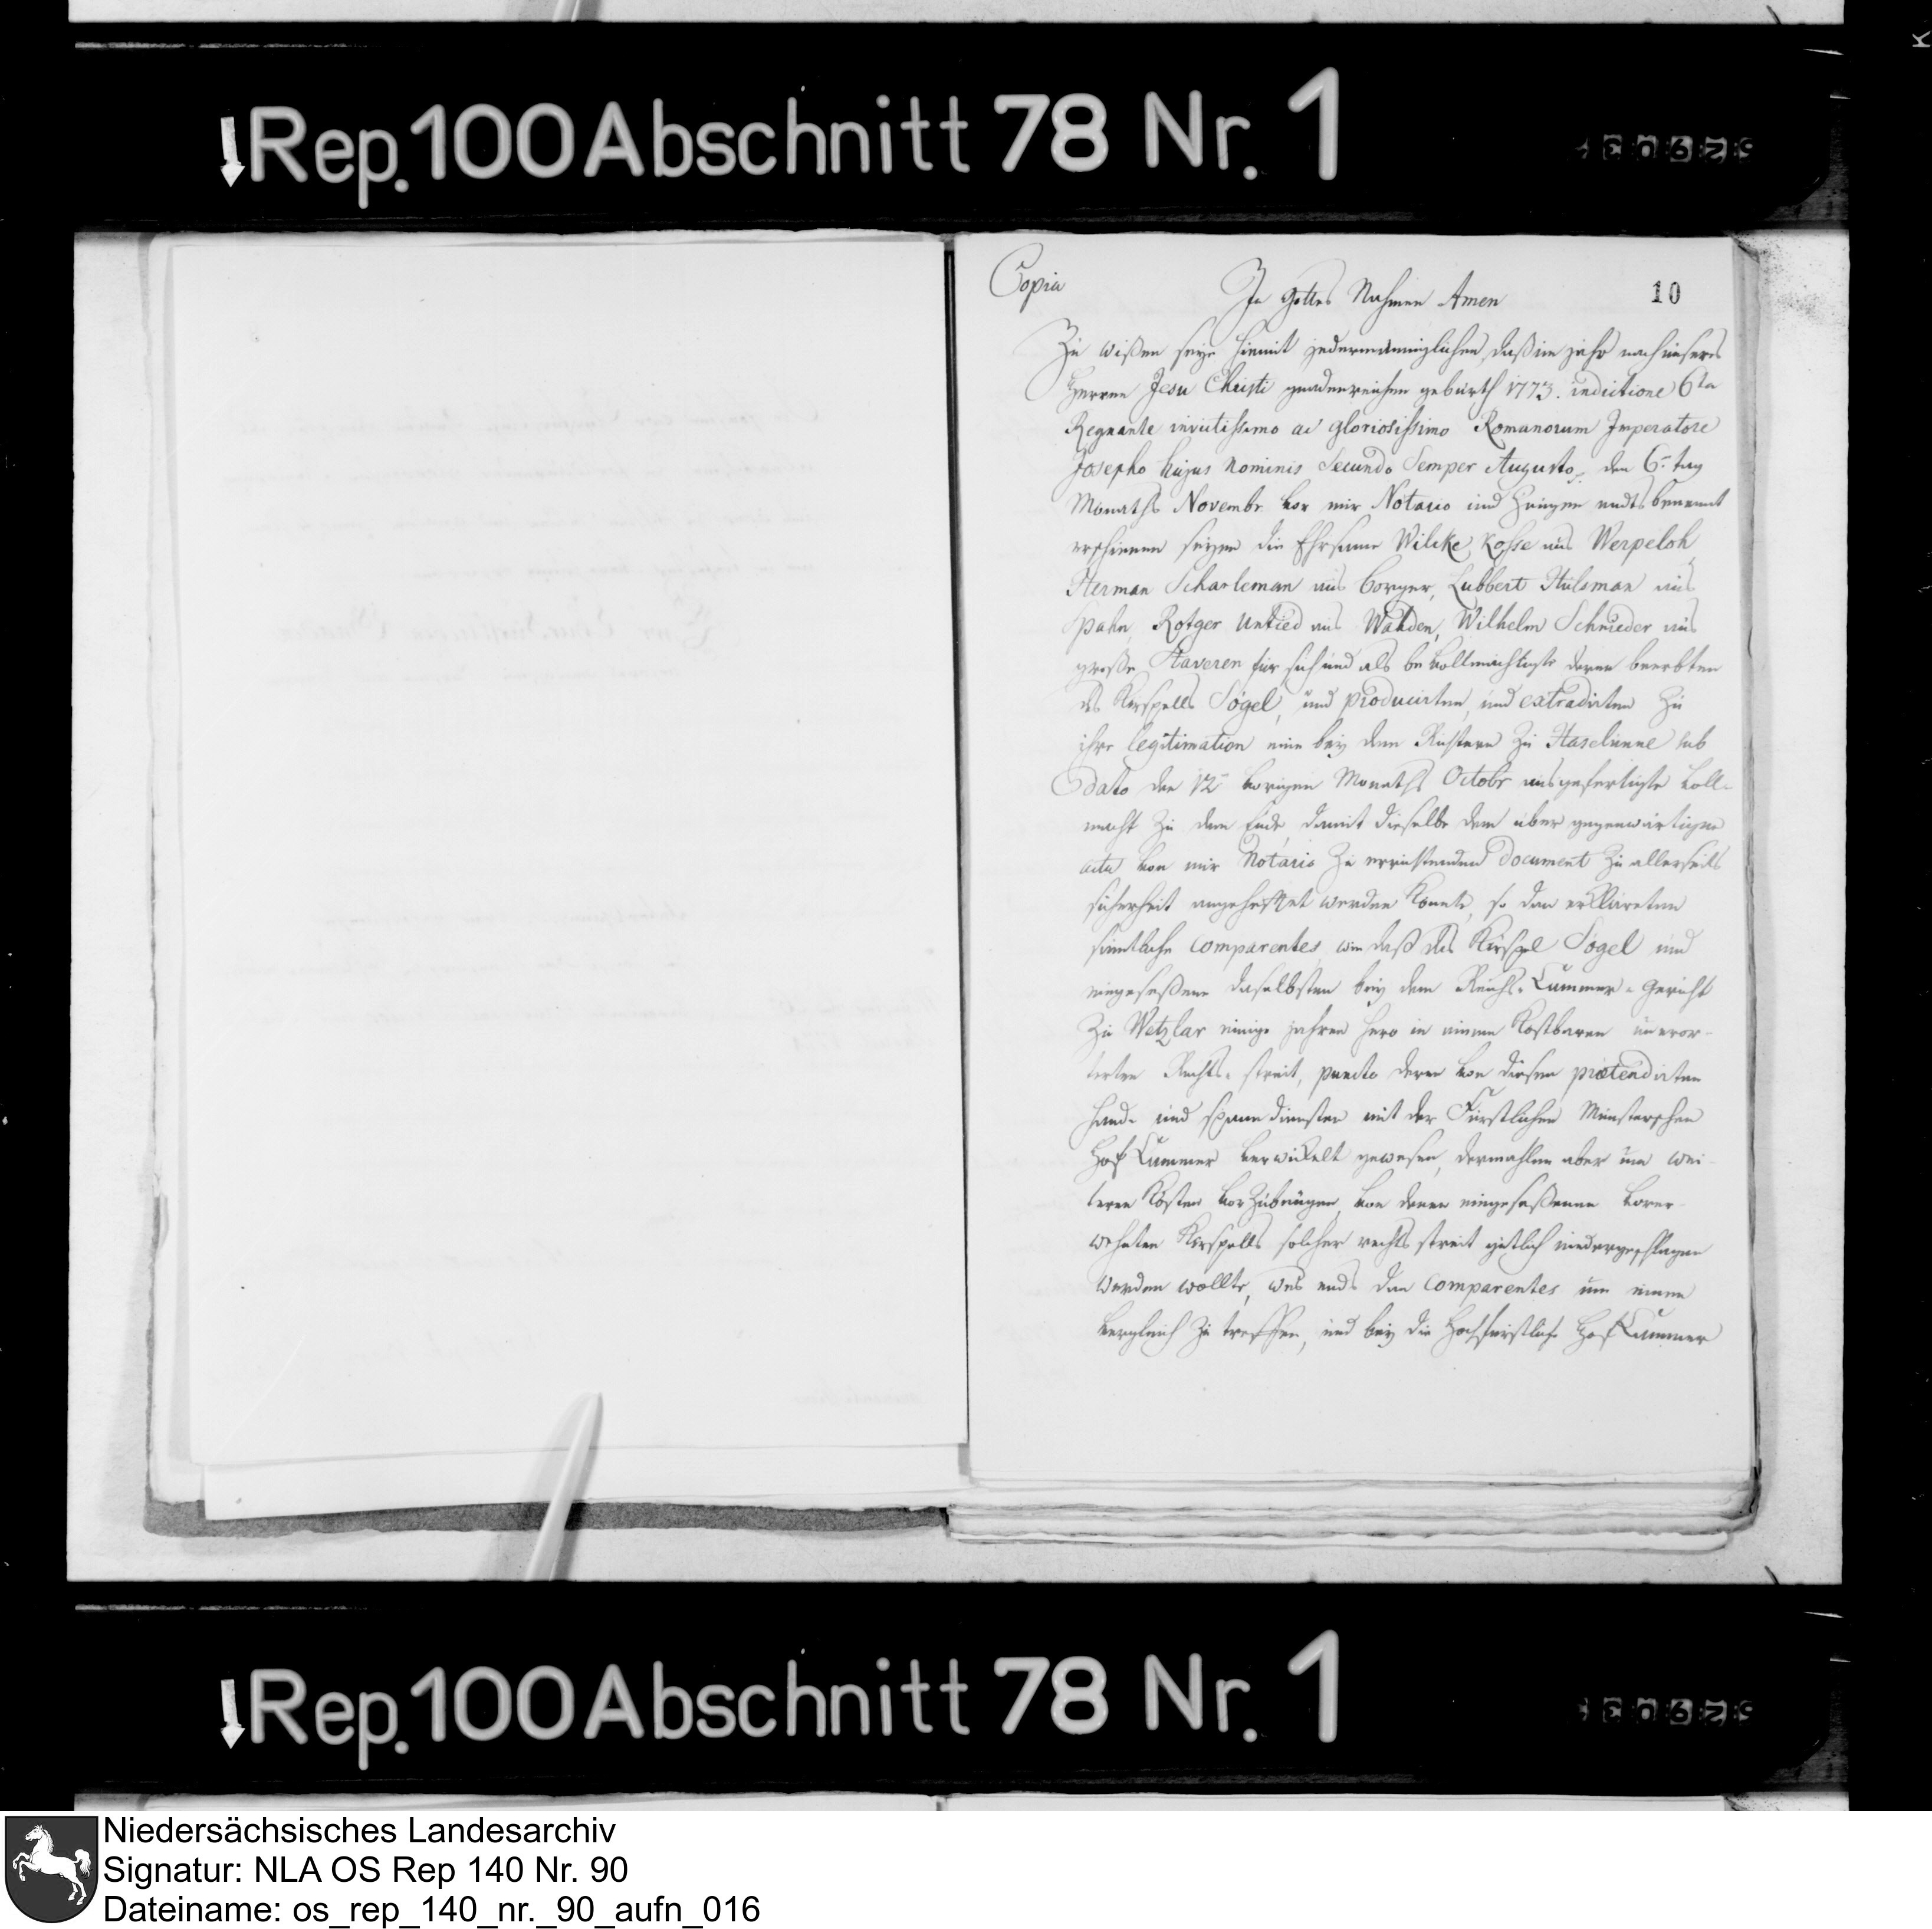 Rep. 100 Abschnitt 78 Nr. 1
Copia
10
In Gottes Nahmen Amen
Zu wißen seye hiemit jedermänniglichen, daß im jahr nach unsers
Herren Jesu Christi gnadenreichen geburth 1773. indictione 6ta
Regnante invictissimo ac gloriosissimo Romanorum Imperatore
Josepho hujus Nominis Secundo Semper Augusto, den 6ten tag
Monaths Novembr vor mir Notario und Zeugen endts benennt
erschienen seyen die Ehrsame Wilcke Kosse aus Werpeloh,
Herman Scharleman aus Borger, Lubbert Hulsman aus
Spahn, Rotger Untied aus Wahden, Wilhelm Schnieder aus
große Staveren für sich und als bevollmächtigte deren beerbten
des Kirspells Sögel, und producirten, und extradirten zu
ihre legitimation eine bey dem Richteren zu Haselünne sub
dato den 12ten vorigen Monaths Octobr ausgefertigte voll-
macht zu dem Ende, damit dieselbe dem über gegenwärtigen
actu von mir Notario zu errichtenden Document zu allerseits
sicherheit angeheftet werden konnte, so dan erklareten
sämtliche Comparentes, wie daß das Kirspel Sögel und
eingeseßene daselbsten bey dem Reichs-Cammer-Gericht
zu Wetzlar einige jahren hero in einem kostbaren unerör-
terten Rechts-streit, puncto deren von diesen prætendirten
Hand- und spann diensten mit der Fürstlichen Münsterschen
Hof Cammer verwickelt gewesen, dermahlen aber um wei-
teren Kösten vorzubeugen, von denen eingeseßenen vorer-
wehnten Kirspells solcher rechts streit gütlich niedergeschlagen
werden wollte, wes ends dan Comparentes um einen
Vergleich zu treffen, und bey die Hochfürstliche Hof Cammer
Rep. 100 Abschnitt 78 Nr. 1
Niedersächsisches Landesarchiv
Signatur: NLA OS Rep 140 Nr. 90
Dateiname: os_rep_140_nr._90_aufn_016